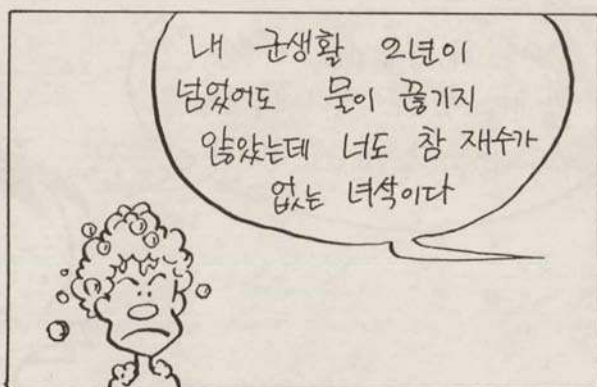 내 군생활 2년이
넘었어도 물이 끊기지
않았는데 너도 참 재수가
없는 녀석이다